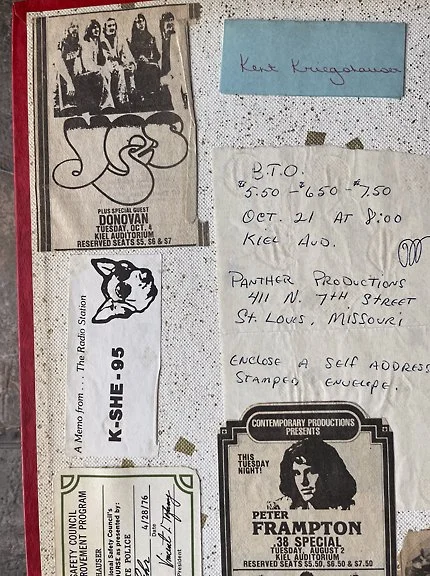 YES
PLUS SPECIAL GUEST
DONOVAN
TUESDAY, OCT. 4
KIEL AUDITORIUM
RESERVED SEATS $5, $6 & $7
Kent Kriegshauser
B.T.O.
$5.50 - $6.50 - $7.50
OCT. 21 AT 8:00
KIEL AUD.
PANTHER PRODUCTIONS
411 N. 7TH STREET
ST. LOUIS, MISSOURI
ENCLOSE A SELF ADDRESS
STAMPED ENVELOPE.
A Memo from . . . The Radio Station
K-SHE-95
CONTEMPORARY PRODUCTIONS
PRESENTS
THIS
TUESDAY
NIGHT!
PETER
FRAMPTON
.38 SPECIAL
TUESDAY, AUGUST 2
KIEL AUDITORIUM
RESERVED SEATS $5.50, $6.50 & $7.50
AFETY COUNCIL
OVEMENT PROGRAM
HAUSER
ional Safety Council's
OURSE as presented by:
TE POLICE
4/28/76
Date
President